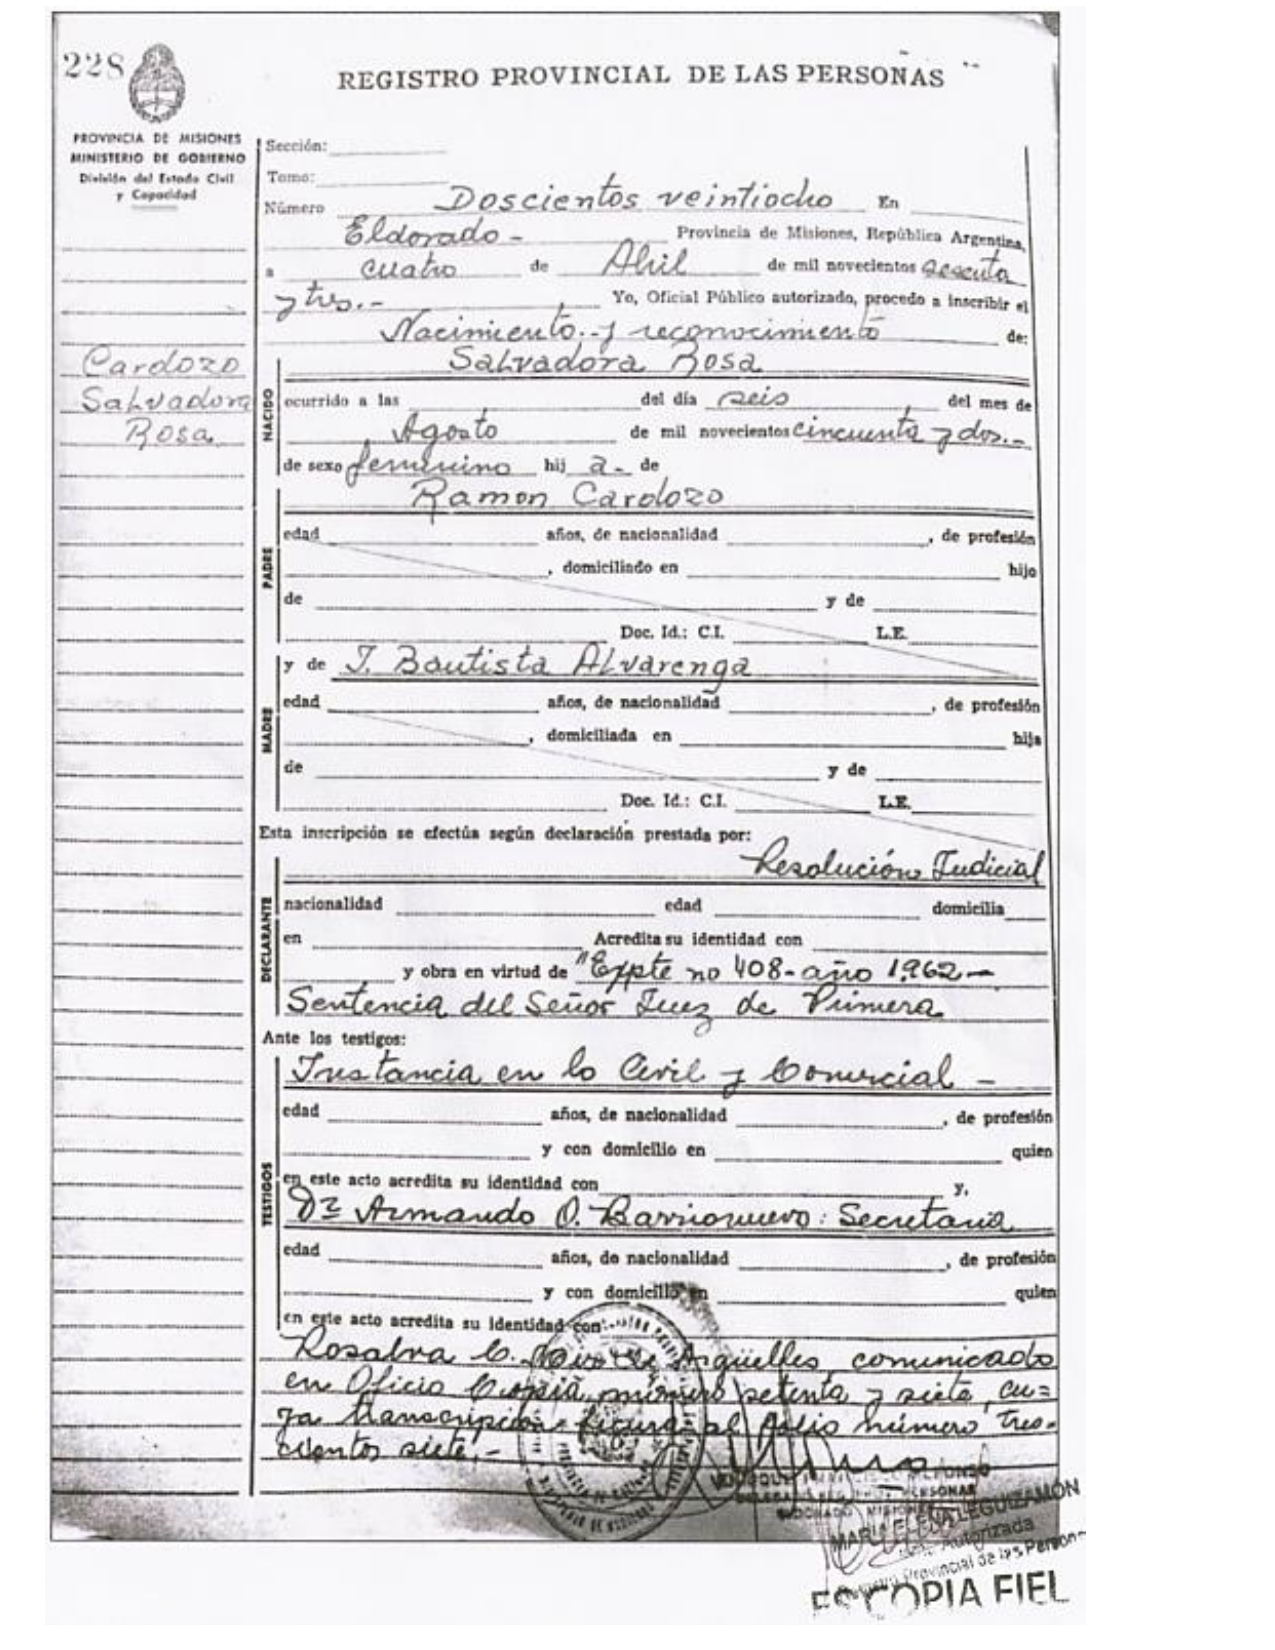 228
REGISTRO PROVINCIAL DE LAS PERSONAS
PROVINCIA DE MISIONES
MINISTERIO DE GOBIERNO
División del Estado Civil
y Capacidad
Sección:
Tomo:
Número Doscientos veintiocho En
Eldorado - Provincia de Misiones, República Argentina,
a cuatro de Abril de mil novecientos sesenta
y tres.- Yo, Oficial Público autorizado, procedo a inscribir el
Nacimiento y reconocimiento de:
Cardozo
Salvadora
Rosa
Salvadora Rosa
NACIDO
ocurrido a las del día seis del mes de
Agosto de mil novecientos cincuenta y dos.-
de sexo femenino hij a- de
Ramon Cardozo
PADRE
edad años, de nacionalidad , de profesión
, domiciliado en hijo
de y de
Doc. Id.: C.I. L.E.
y de J. Bautista Alvarenga
MADRE
edad años, de nacionalidad , de profesión
, domiciliada en hija
de y de
Doc. Id.: C.I. L.E.
Esta inscripción se efectúa según declaración prestada por:
Resolución Judicial
DECLARANTE
nacionalidad edad domicilia
en Acredita su identidad con
y obra en virtud de "Expte no 408- año 1962-
Sentencia del Señor Juez de Primera
Ante los testigos:
Instancia en lo Civil y Comercial -
TESTIGOS
edad años, de nacionalidad , de profesión
y con domicilio en quien
en este acto acredita su identidad con y,
Dr Armando O. Barrionuevo: Secretaria
edad años, de nacionalidad , de profesión
y con domicilio en quien
en este acto acredita su identidad con
Rosalva C. de Argüelles, comunicado
en Oficio Copia número setenta y siete, cu=
ya transcripción figura al folio número tres-
cientos siete.-
MARIA ELENA LEGUIZAMON
Autorizada
Provincial de las Person
ES COPIA FIEL